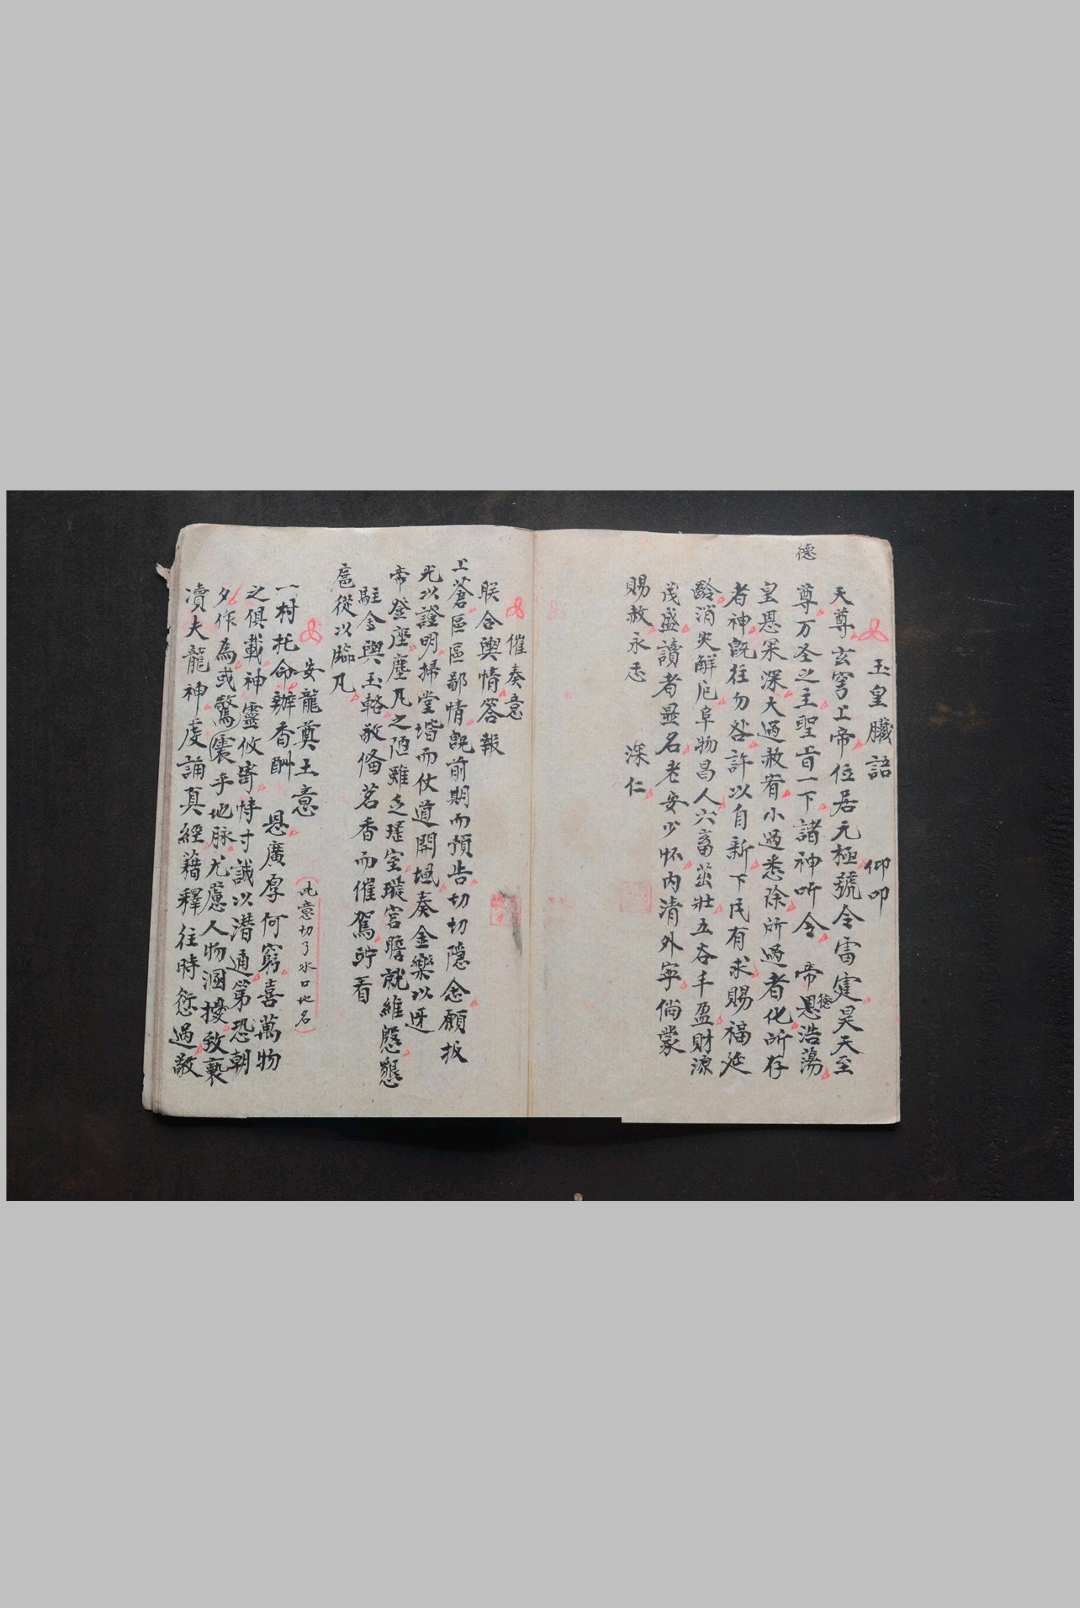 德
玉皇牒語 仰叩
天尊玄穹上帝位居元極號令雷霆昊天至
尊万圣之主聖旨一下諸神听令 帝恩德浩蕩
皇恩罙深大過赦宥小過悉除所過者化所存
者神既往勿咎許以自新下民有求賜福延
齡消灾解厄阜物昌人六畜茁壯五谷丰盈財源
茂盛讀者显名老安少怀内清外寧倘蒙
賜赦永志 深仁
催奏意
朕合輿情答報
上蒼區區鄙情既前期而預告切切隱念願扳
光以證明掃堂堦而仗道開壇奏金樂以迓
帝登座塵凡之陋雖乏瑤室璇宮瞻就維慇懇
駐金輿玉輅敬俻茗香而催駕竚看
扈從以臨凡
安龍奠土意
(此意切了水口地名)
一村托命辦香酬 恩廣厚何窮喜萬物
之俱載神靈攸寄恃寸誠以潜通第恐朝
夕作為或驚震乎地脉尤慮人物溷擾致褻
瀆夫龍神虔誦真經藉釋往時愆過敬